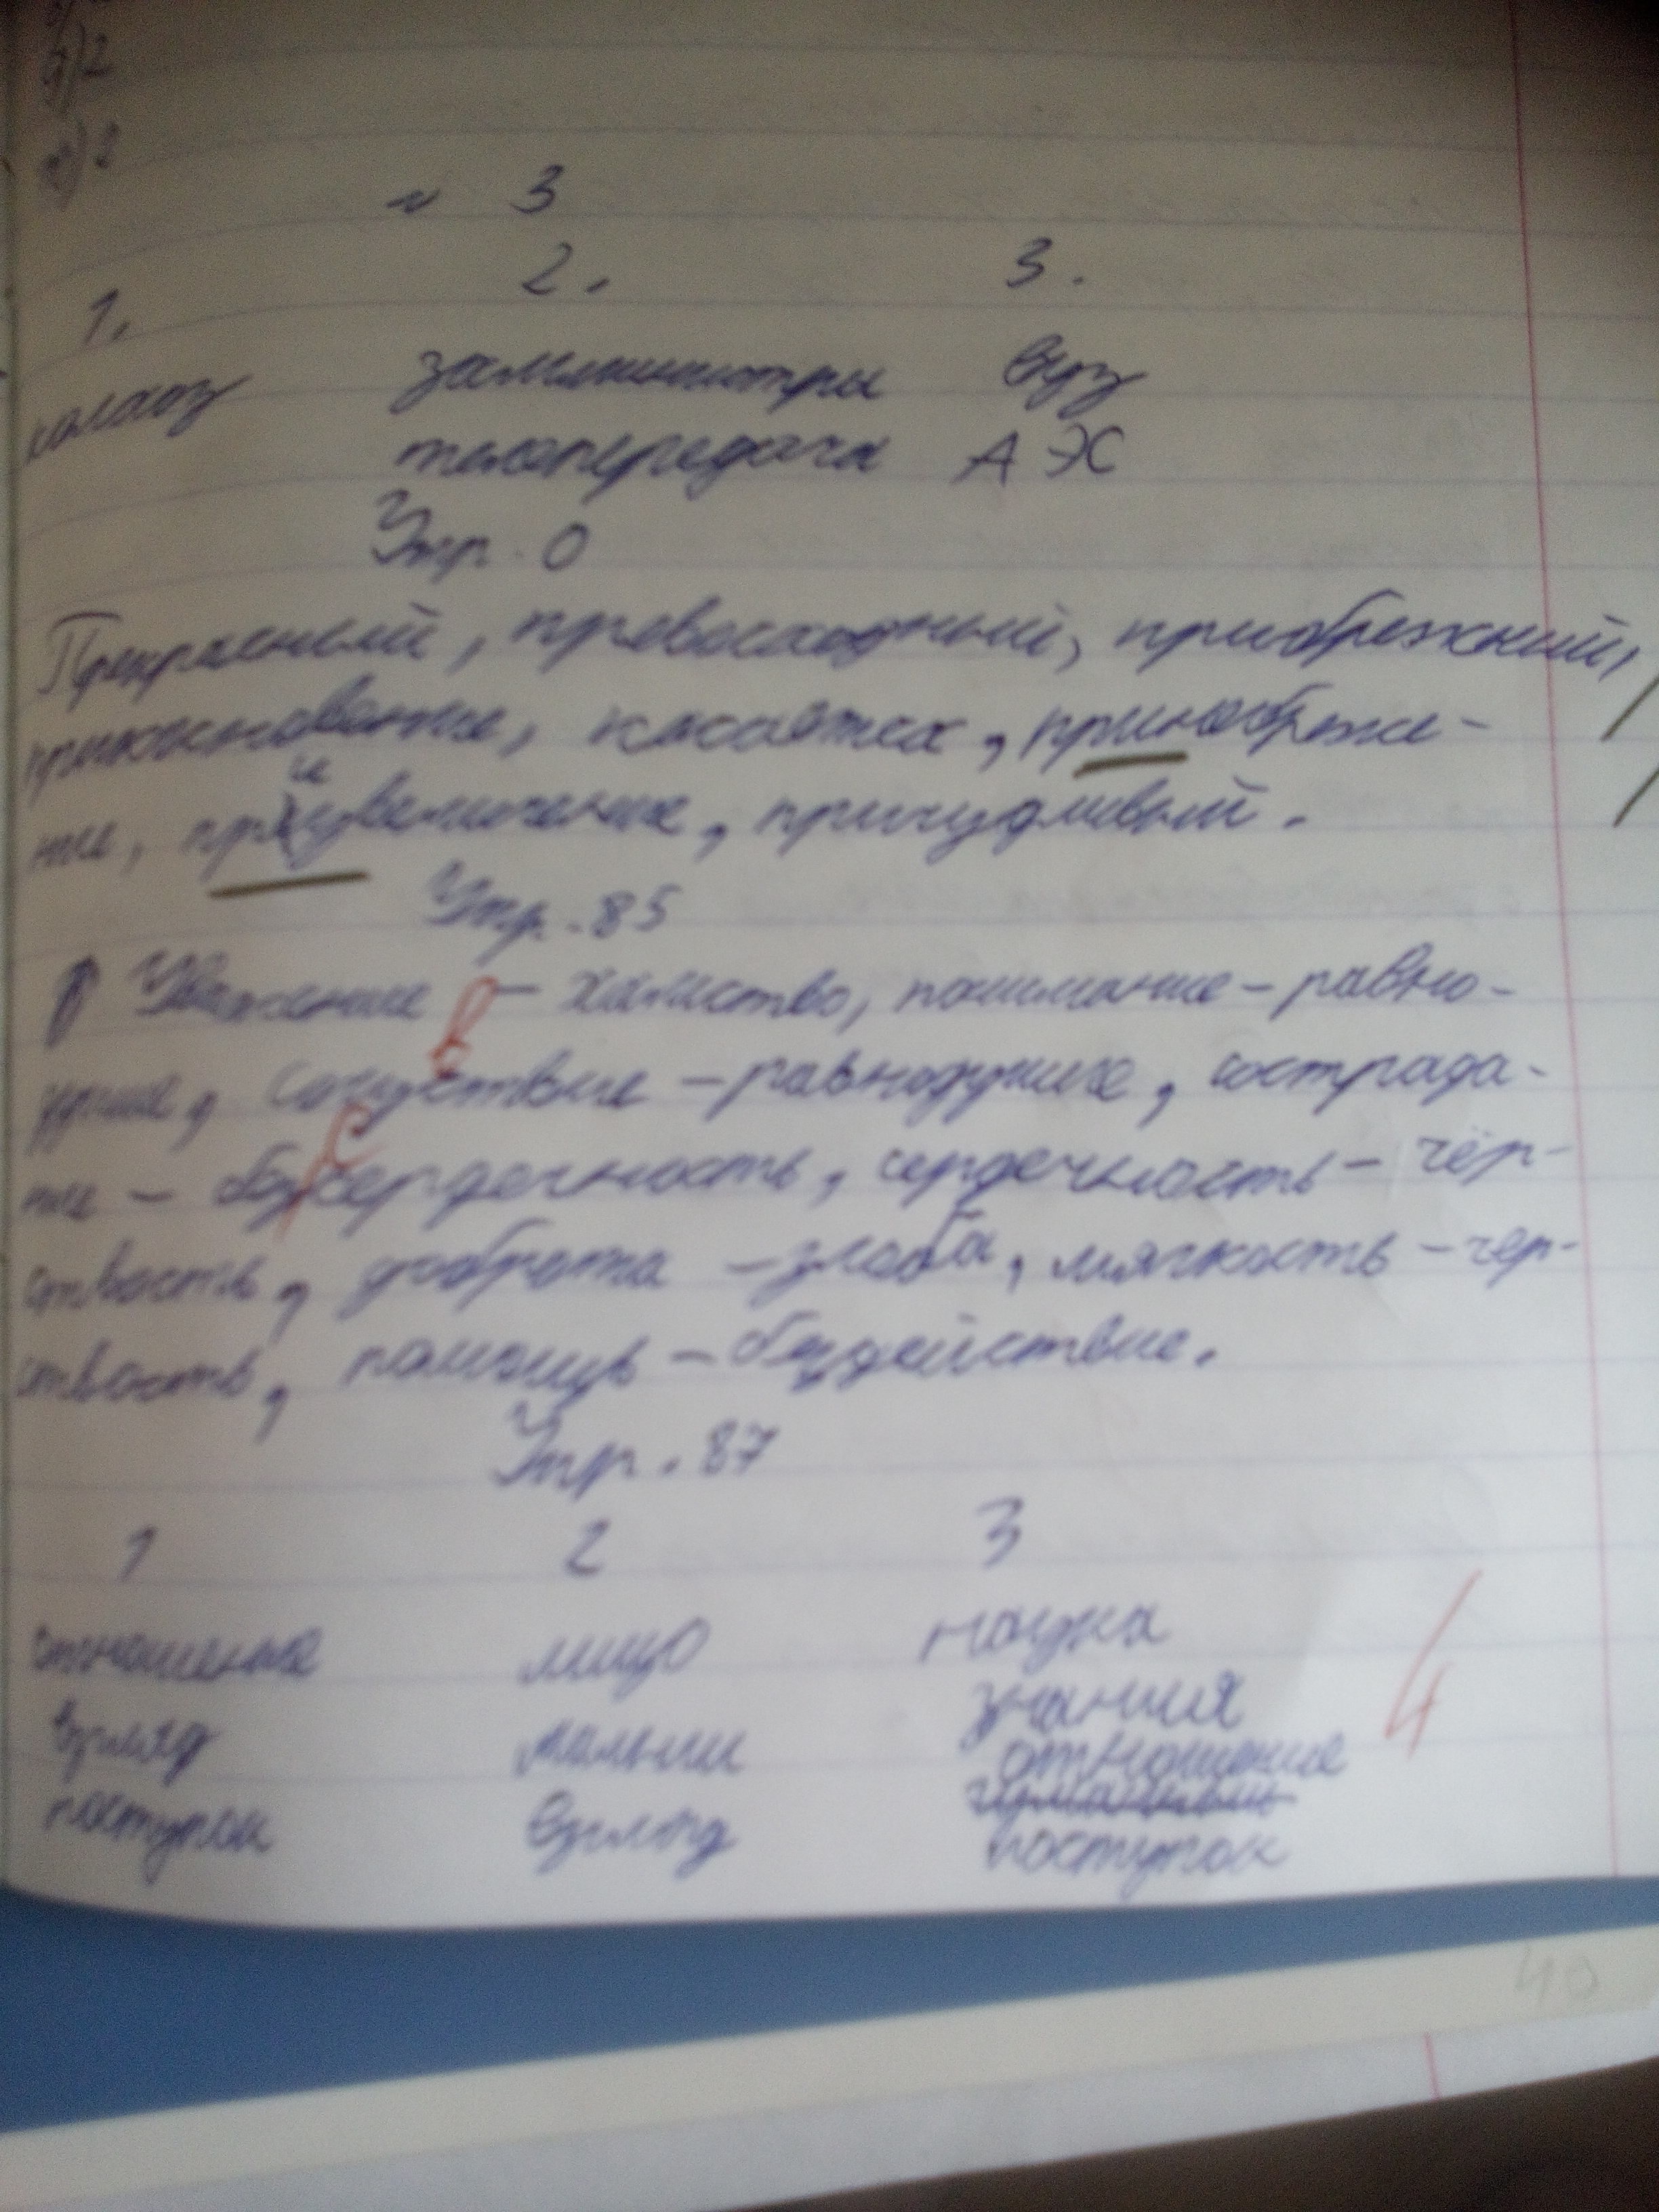 б) 2
в) 2
№ 3
1. 2. 3.
колхоз замминистры вуз
телепередача АЭС
Упр. 0
Прекрасный, превосходный, приобрежный,
прикосновение, касается, принебреже-
ние, приувеличение, причудливый.
Упр. 85
Уважение – хамство, понимание – равно-
душие, сочувствие – равнодушие, сострада-
ние – безсердечность, сердечность – чёр-
ствость, доброта – злоба, мягкость – чер-
ствость, помощь – бездействие.
Упр. 87
1 2 3
отношение лицо наука
взгляд знания
поступок взгляд отношение
поступок
4
40